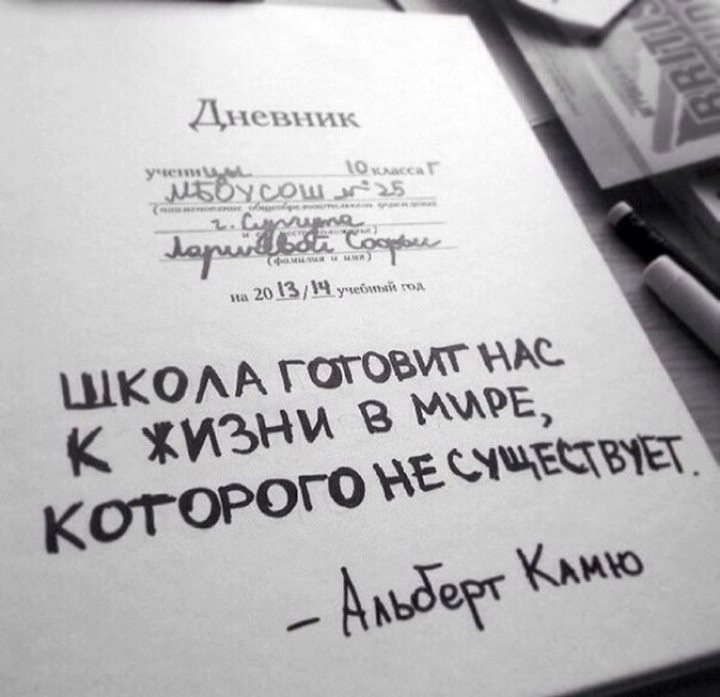 Дневник
ученицы 10 класса Г
МБОУ СОШ №25
(наименование общеобразовательного учреждения
г. Сургута
Софьи
(фамилия и имя)
на 2013/14 учебный год
ШКОЛА ГОТОВИТ НАС
К ЖИЗНИ В МИРЕ,
КОТОРОГО НЕ СУЩЕСТВУЕТ.
- Альберт Камю